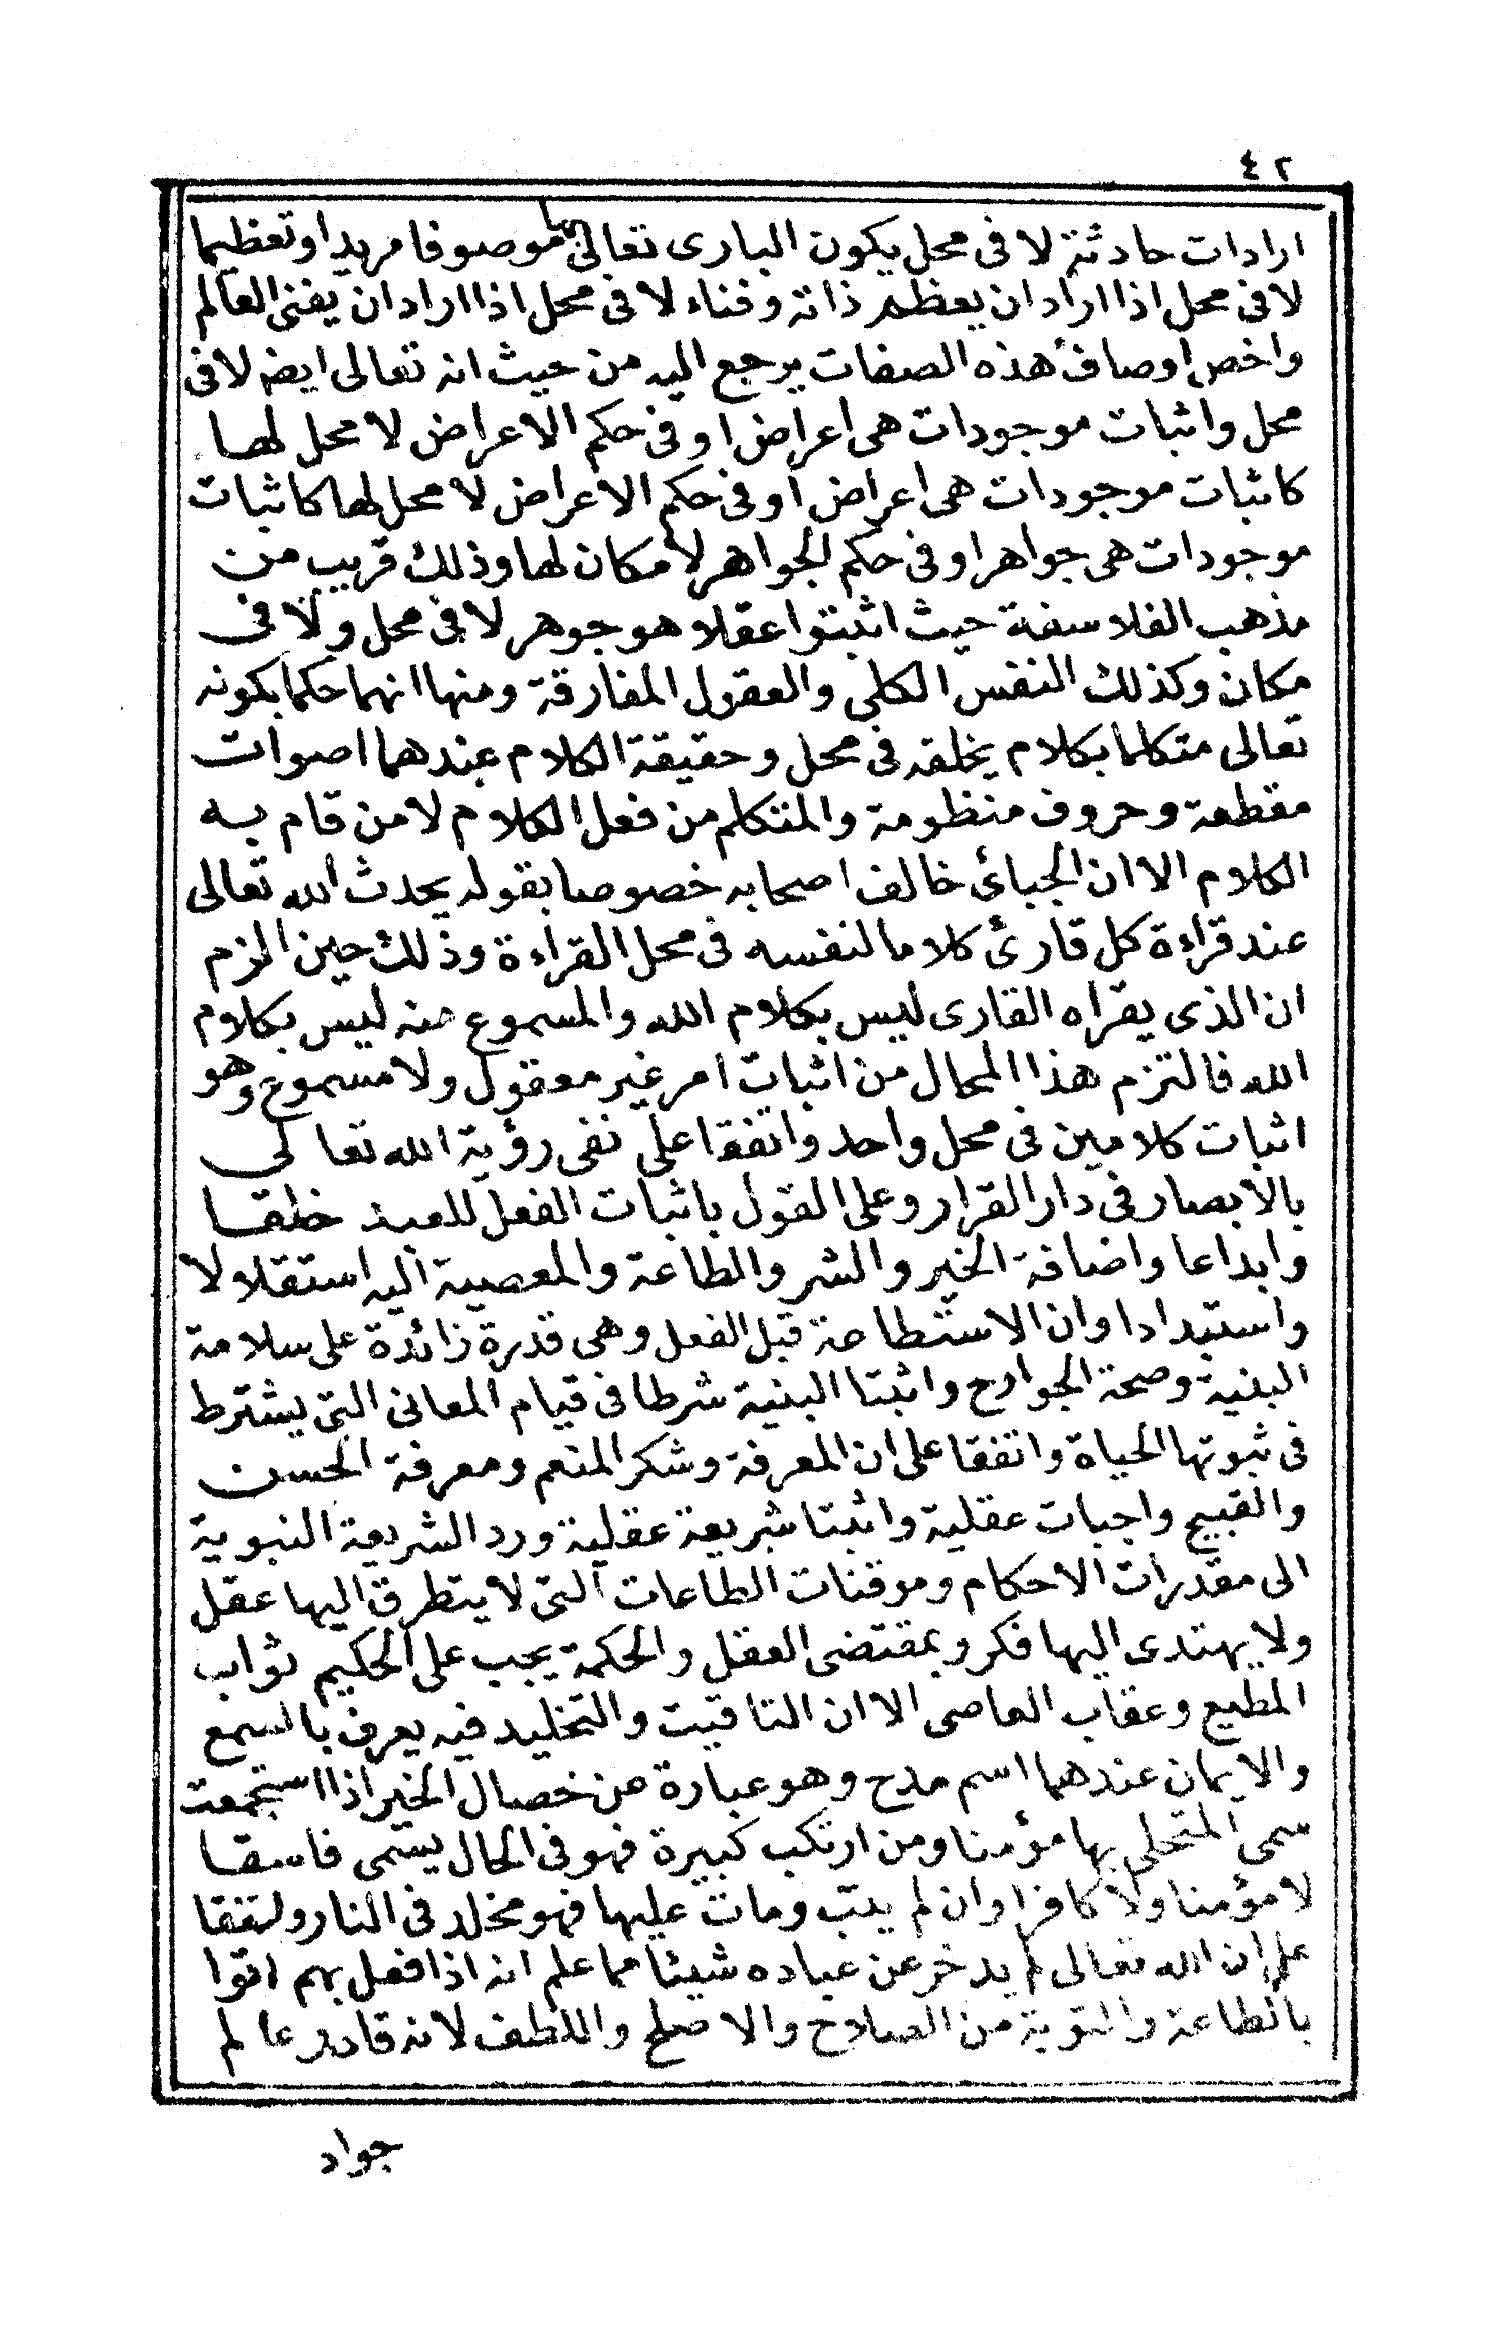 ٤٢
ارادات حادثة لا فى محل يكون البارى تعالى بها موصوفا مريدا وتعظيما
لا فى محل اذا اراد ان يعظم ذاته وفناء لا فى محل اذا اراد ان يفنى العالم
واخص اوصاف هذه الصفات يرجع اليه من حيث انه تعالى ايضه لا فى
محل واثبات موجودات هى اعراض او فى حكم الاعراض لا محل لها
كاثبات موجودات هى اعراض او فى حكم الاعراض لا محل لها كاثبات
موجودات هى جواهر او فى حكم الجواهر لا مكان لها وذلك قريب من
مذهب الفلاسفة حيث اثبتوا عقلا هو جوهر لا فى محل ولا فى
مكان وكذلك النفس الكلى والعقول المفارقة ومنها انهما حكما بكونه
تعالى متكلما بكلام يخلقه فى محل وحقيقة الكلام عندهما اصوات
مقطعة وحروف منظومة والمتكلم من فعل الكلام لا من قام به
الكلام الا ان الجبائى خالف اصحابه خصوصا بقوله يحدث الله تعالى
عند قراءة كل قارئ كلاما لنفسه فى محل القراءة وذلك حين الزم
ان الذى يقراه القارى ليس بكلام الله والمسموع منه ليس بكلام
الله فالتزم هذا المحال من اثبات امر غير معقول ولا مسموع وهو
اثبات كلامين فى محل واحد واتفقا على نفى رؤية الله تعالى
بالابصار فى دار القرار وعلى القول باثبات الفعل للعبد خلقا
وابداعا واضافة الخير والشر والطاعة والمعصية اليه استقلالا
واستبدادا وان الاستطاعة قبل الفعل وهى قدرة زائدة على سلامة
البنية وصحة الجوارح واثبتا البنية شرطا فى قيام المعانى التى يشترط
فى ثبوتها الحياة واتفقا على ان المعرفة وشكر المنعم ومعرفة الحسن
والقبيح واجبات عقلية واثبتا شريعة عقلية ورد الشريعة النبوية
الى مقدرات الاحكام وموقتات الطاعات التى لا يتطرق اليها عقل
ولا يهتدى اليها فكر وبمقتضى العقل والحكمة يجب على الحكيم ثواب
المطيع وعقاب العاصى الا ان التاقيت والتخليد فيه يعرف بالسمع
والايمان عندهما اسم مدح وهو عبارة عن خصال الخير اذا استجمعت
سمى المتحلى بها مؤمنا ومن ارتكب كبيرة فهو فى الحال يسمى فاسقا
لا مؤمنا ولا كافرا وان لم يتب ومات عليها فهو مخلد فى النار واتفقا
على ان الله تعالى لم يدخر عن عباده شيئا مما علم انه اذا فعل بهم اتوا
بالطاعة والتوبة من الصلاح والاصلح واللطف لانه قادر عالم
جواد